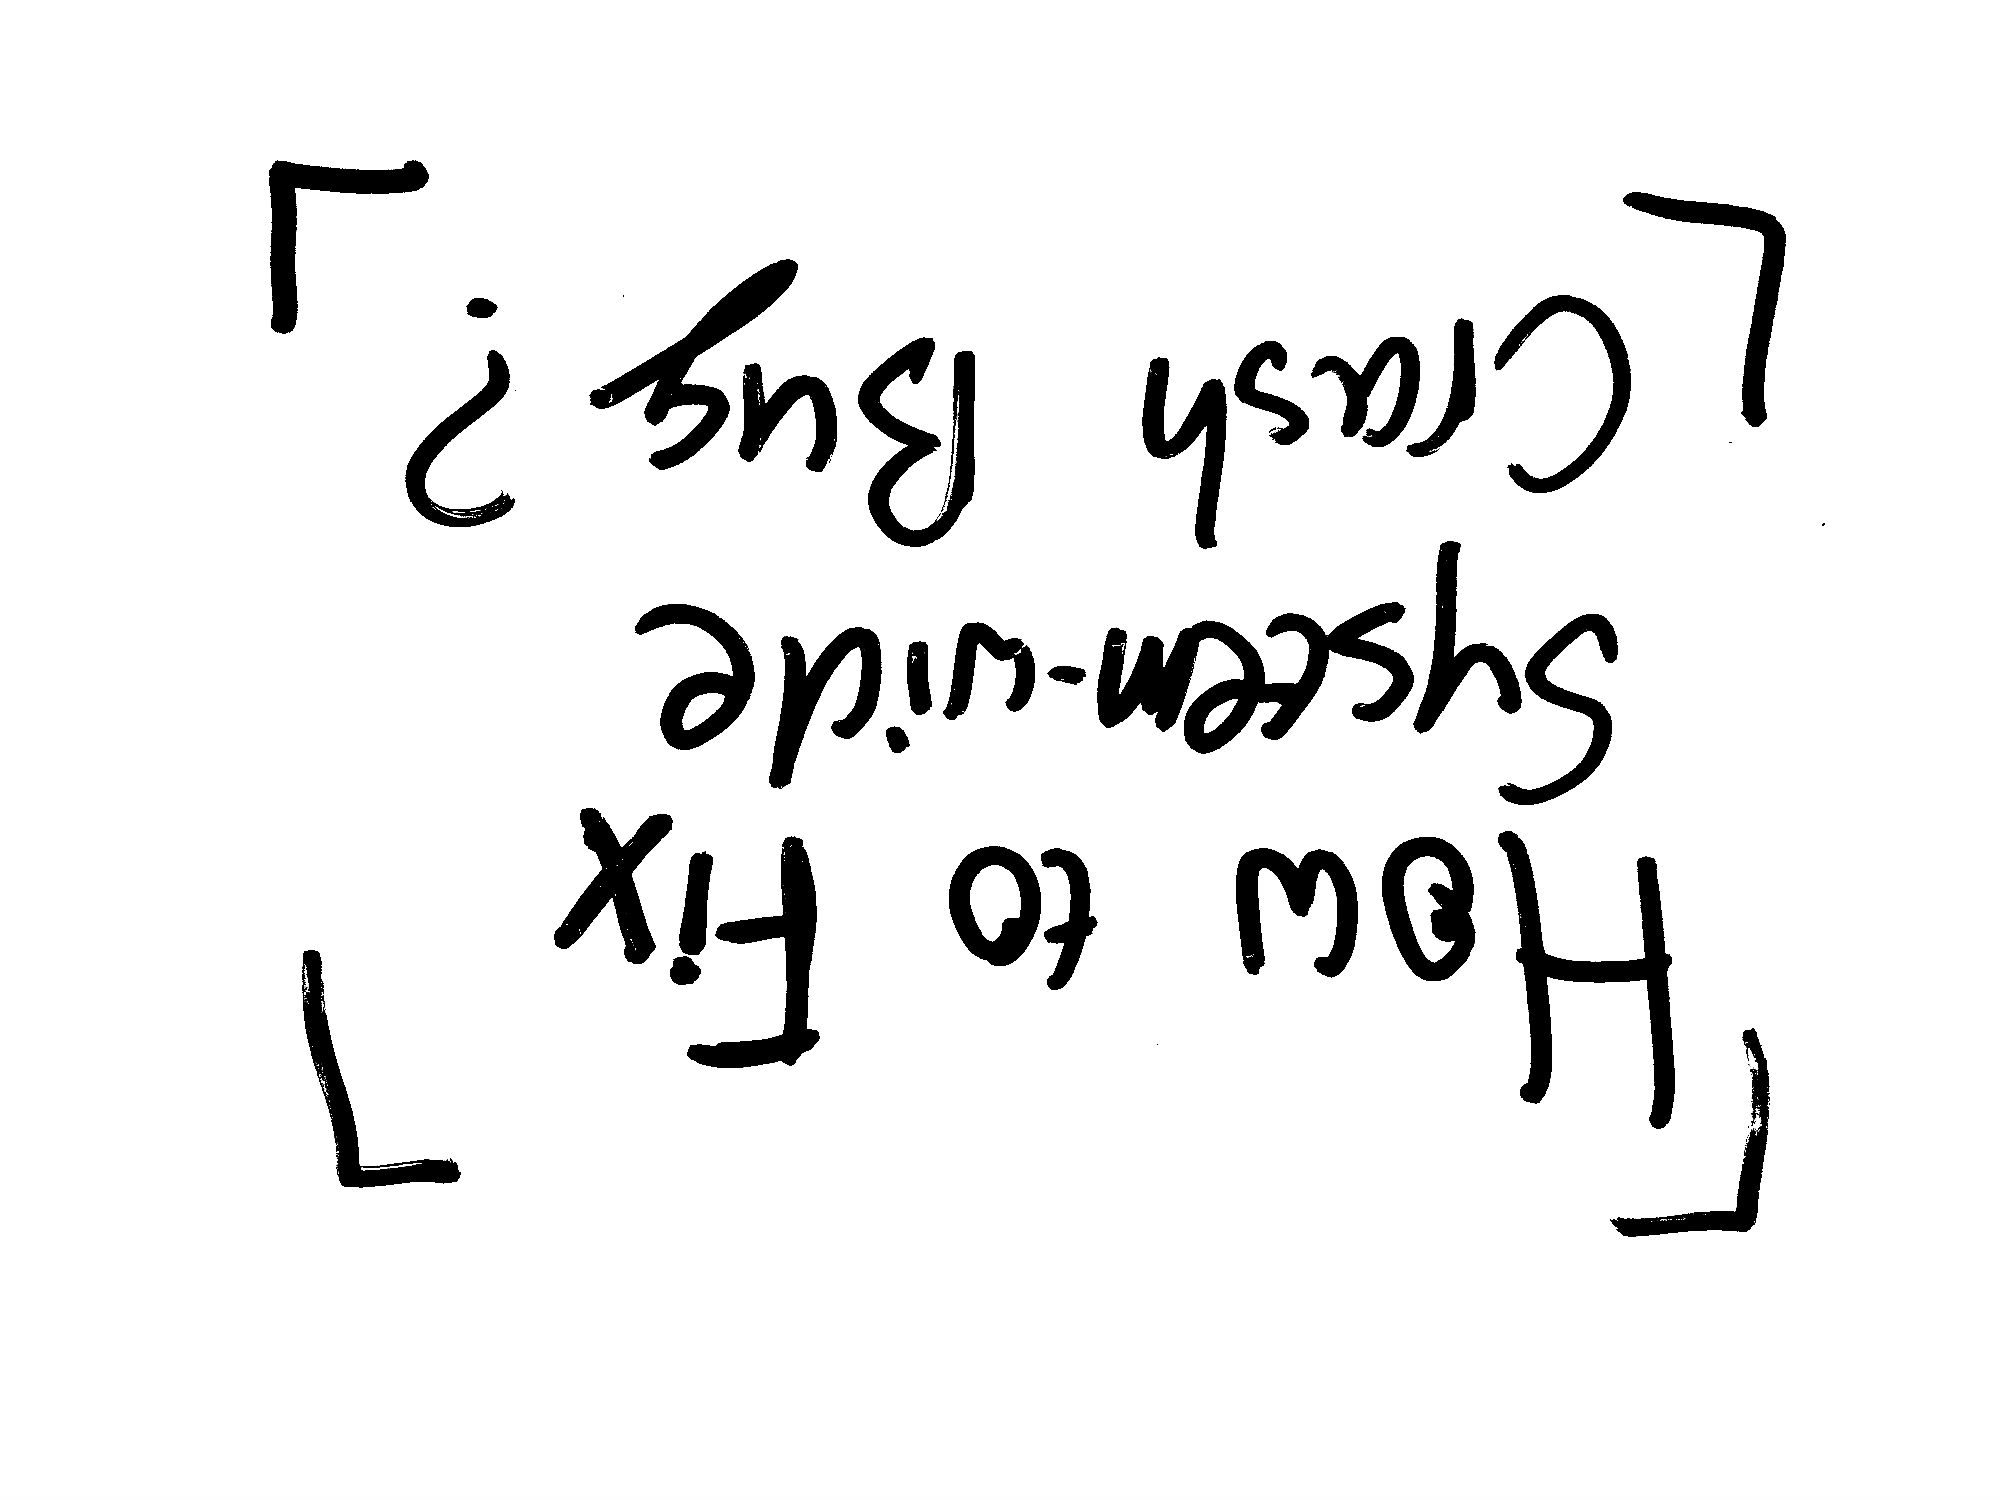 How to Fix
System-wide
Crash Bug?